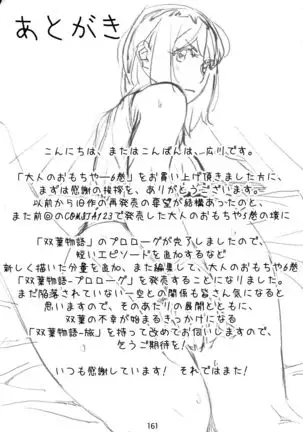 あとがき
こんにちは、またはこんばんは、広川です。
「大人のおもちゃー6巻」をお買い上げ頂きました方に、
まずは感謝の挨拶を、ありがとうございます。
以前から旧作の再発売の要望が結構あったのと、
また前@のCOMJIA123で発売した大人のおもちゃ5巻の壊に
「双葉物語」のプロローグが完了しましたので、
短いエピソードを追加するなど
新しく描いた分量を追加、また編集して、大人のおもちゃ6巻
「双葉物語-プロローグ」を発売することになりました。
まだ陥落されていない一堂との関係も皆さん気になると
思いますので、そのあたりの展開とともに、
双葉の不幸が始まるきっかけになる
「双葉物語-旅」を持って改めてお伺いしますので、
乞うご期待を!
いつも感謝しています! それではまた!
161